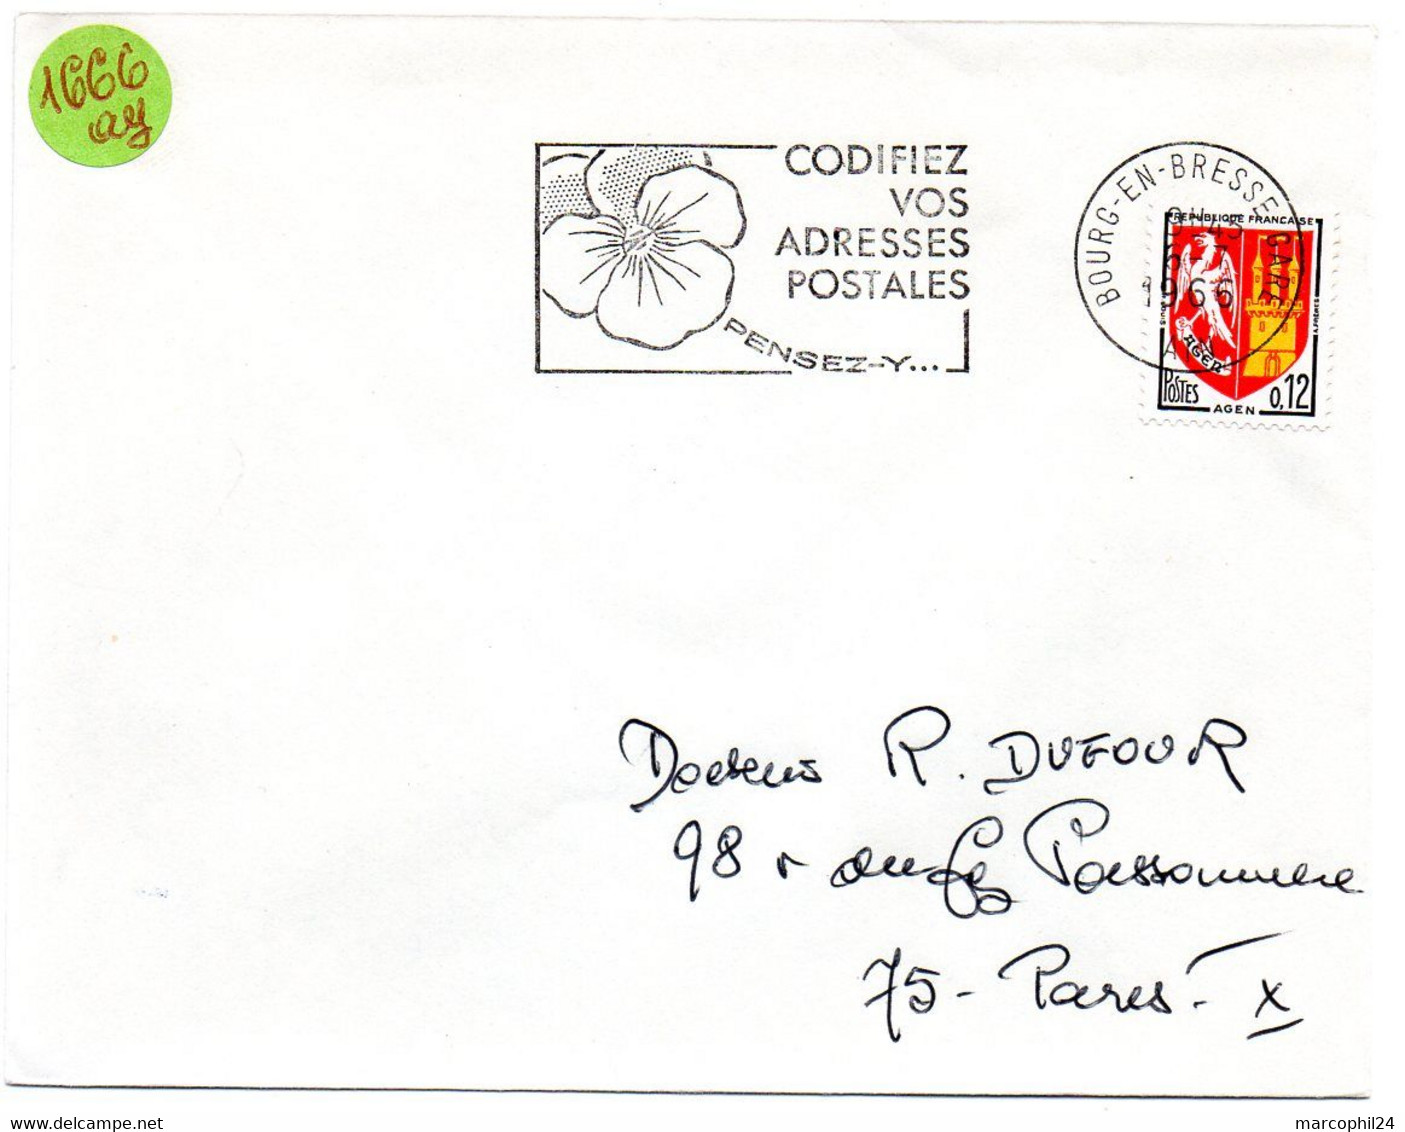 1666
ay
CODIFIEZ
VOS
ADRESSES
POSTALES
PENSEZ-Y...
BOURG-EN-BRESSE GARE
9H45
6-7
1966
AIN
REPUBLIQUE FRANÇAISE
AGEN
POSTES
0,12
AGEN
Docteur R. DUFOUR
98 r du fg Poissonniere
75 - Paris - X
www.delcampe.net
marcophil24